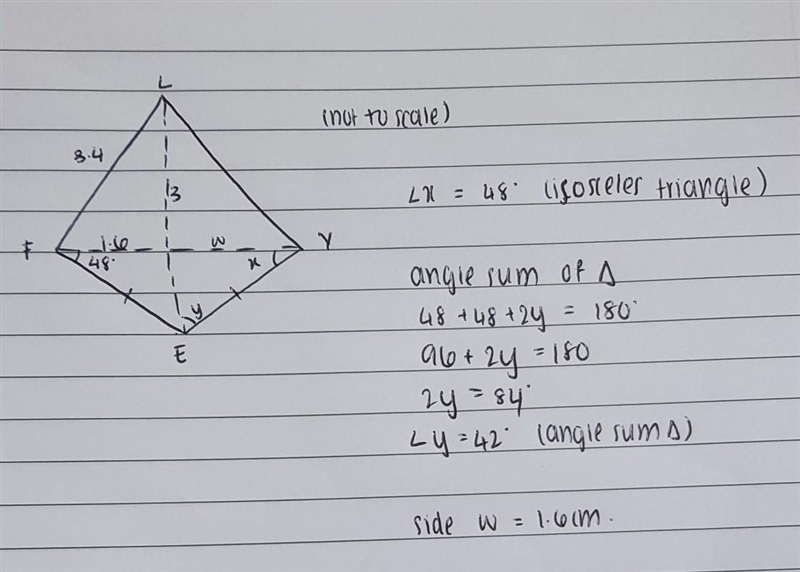 L
(not to scale)
3.4
3
∠x = 48° (isosceles triangle)
F
1.6
w
Y
48°
x
angle sum of Δ
48 + 48 + 2y = 180°
y
96 + 2y = 180
E
2y = 84°
∠y = 42° (angle sum Δ)
side w = 1.6cm.